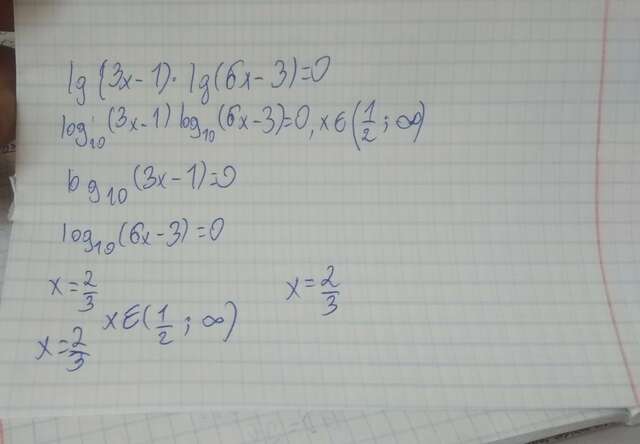 lg(3x-1)·lg(6x-3)=0
log₁₀(3x-1) log₁₀(6x-3)=0, x∈(1/2; ∞)
log₁₀(3x-1)=0
log₁₀(6x-3)=0
x=2/3 x=2/3
x∈(1/2; ∞)
x=2/3